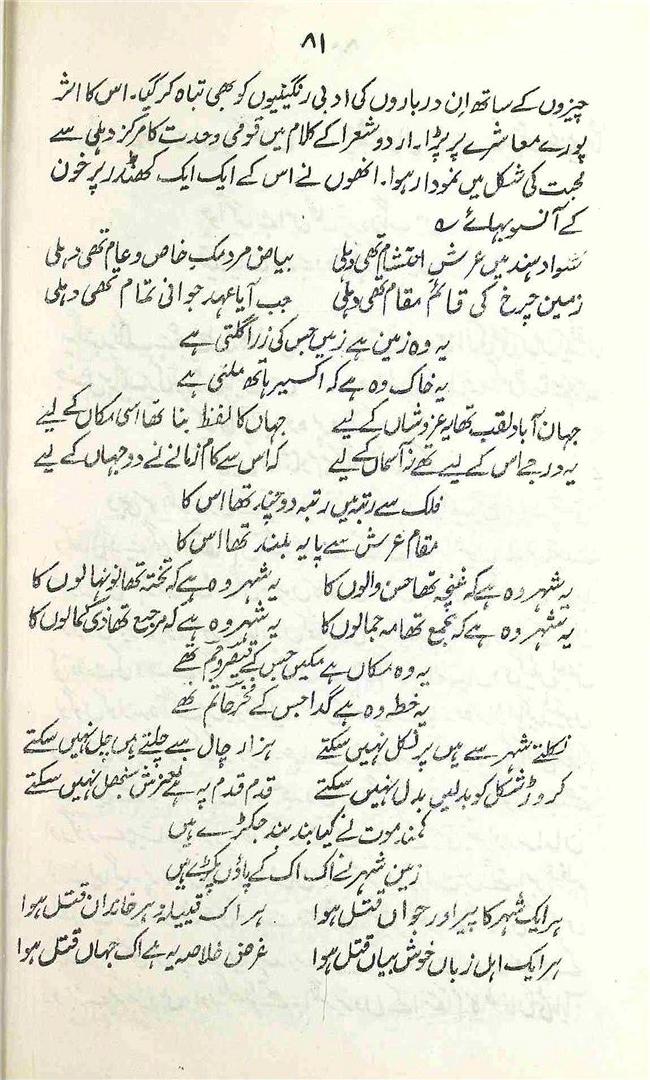 ۸۱
چیزوں کے ساتھ ان درباروں کی ادبی رنگینیوں کو بھی تباہ کر گیا۔ اس کا اثر
پورے معاشرے پر پڑا۔ اردو شعرا کے کلام میں قومی وحدت کا مرکز دہلی سے
محبت کی شکل میں نمودار ہوا۔ انھوں نے اس کے ایک ایک کھنڈر پر خون
کے آنسو بہائے ؎
سواد ہند میں عرش احتشام تھی دہلی بیاض مردمک خاص و عام تھی دہلی
زمین چرخ کی قائم مقام تھی دہلی جب آیا عہد جوانی تمام تھی دہلی
یہ وہ زمین ہے زمیں جس کی زر اگلتی ہے
یہ خاک وہ ہے کہ اکسیر ہاتھ ملتی ہے
جہان آباد لقب تھا یہ عز و شاں کے لیے جہاں کا لفظ بنا تھا اسی مکاں کے لیے
یہ درجے اس کے لیے تھے نہ آسماں کے لیے کہ اس سے کام زمانے نے دو جہاں کے لیے
فلک سے رتبہ میں رتبہ دوچار تھا اس کا
مقام عرش سے پایہ بلند تھا اس کا
یہ شہر وہ ہے کہ غنچہ تھا حسن والوں کا یہ شہر وہ ہے کہ تختہ تھا نونہالوں کا
یہ شہر وہ ہے کہ مجمع تھا مہ جمالوں کا یہ شہر وہ ہے کہ مرجع تھا ذی کمالوں کا
یہ وہ مکاں ہے مکیں جس کے قیصر و جم تھے
یہ خطہ وہ ہے گدا جس کے فخر حاتم تھے
نکلتے شہر سے ہیں پر نکل نہیں سکتے ہزار چال سے چلتے ہیں چل نہیں سکتے
کروڑ شکل کو بدلیں بدل نہیں سکتے قدم قدم پہ ہے لغزش سنبھل نہیں سکتے
کمند موت نے کیا بند بند جکڑے ہیں
زمین شہر نے اک اک کے پاؤں پکڑے ہیں
ہر ایک شہر کا پیر اور جواں قتل ہوا ہر اک قبیلہ و ہر خاندان قتل ہوا
ہر ایک اہل زباں خوش بیاں قتل ہوا غرض خلاصہ یہ ہے اک جہاں قتل ہوا